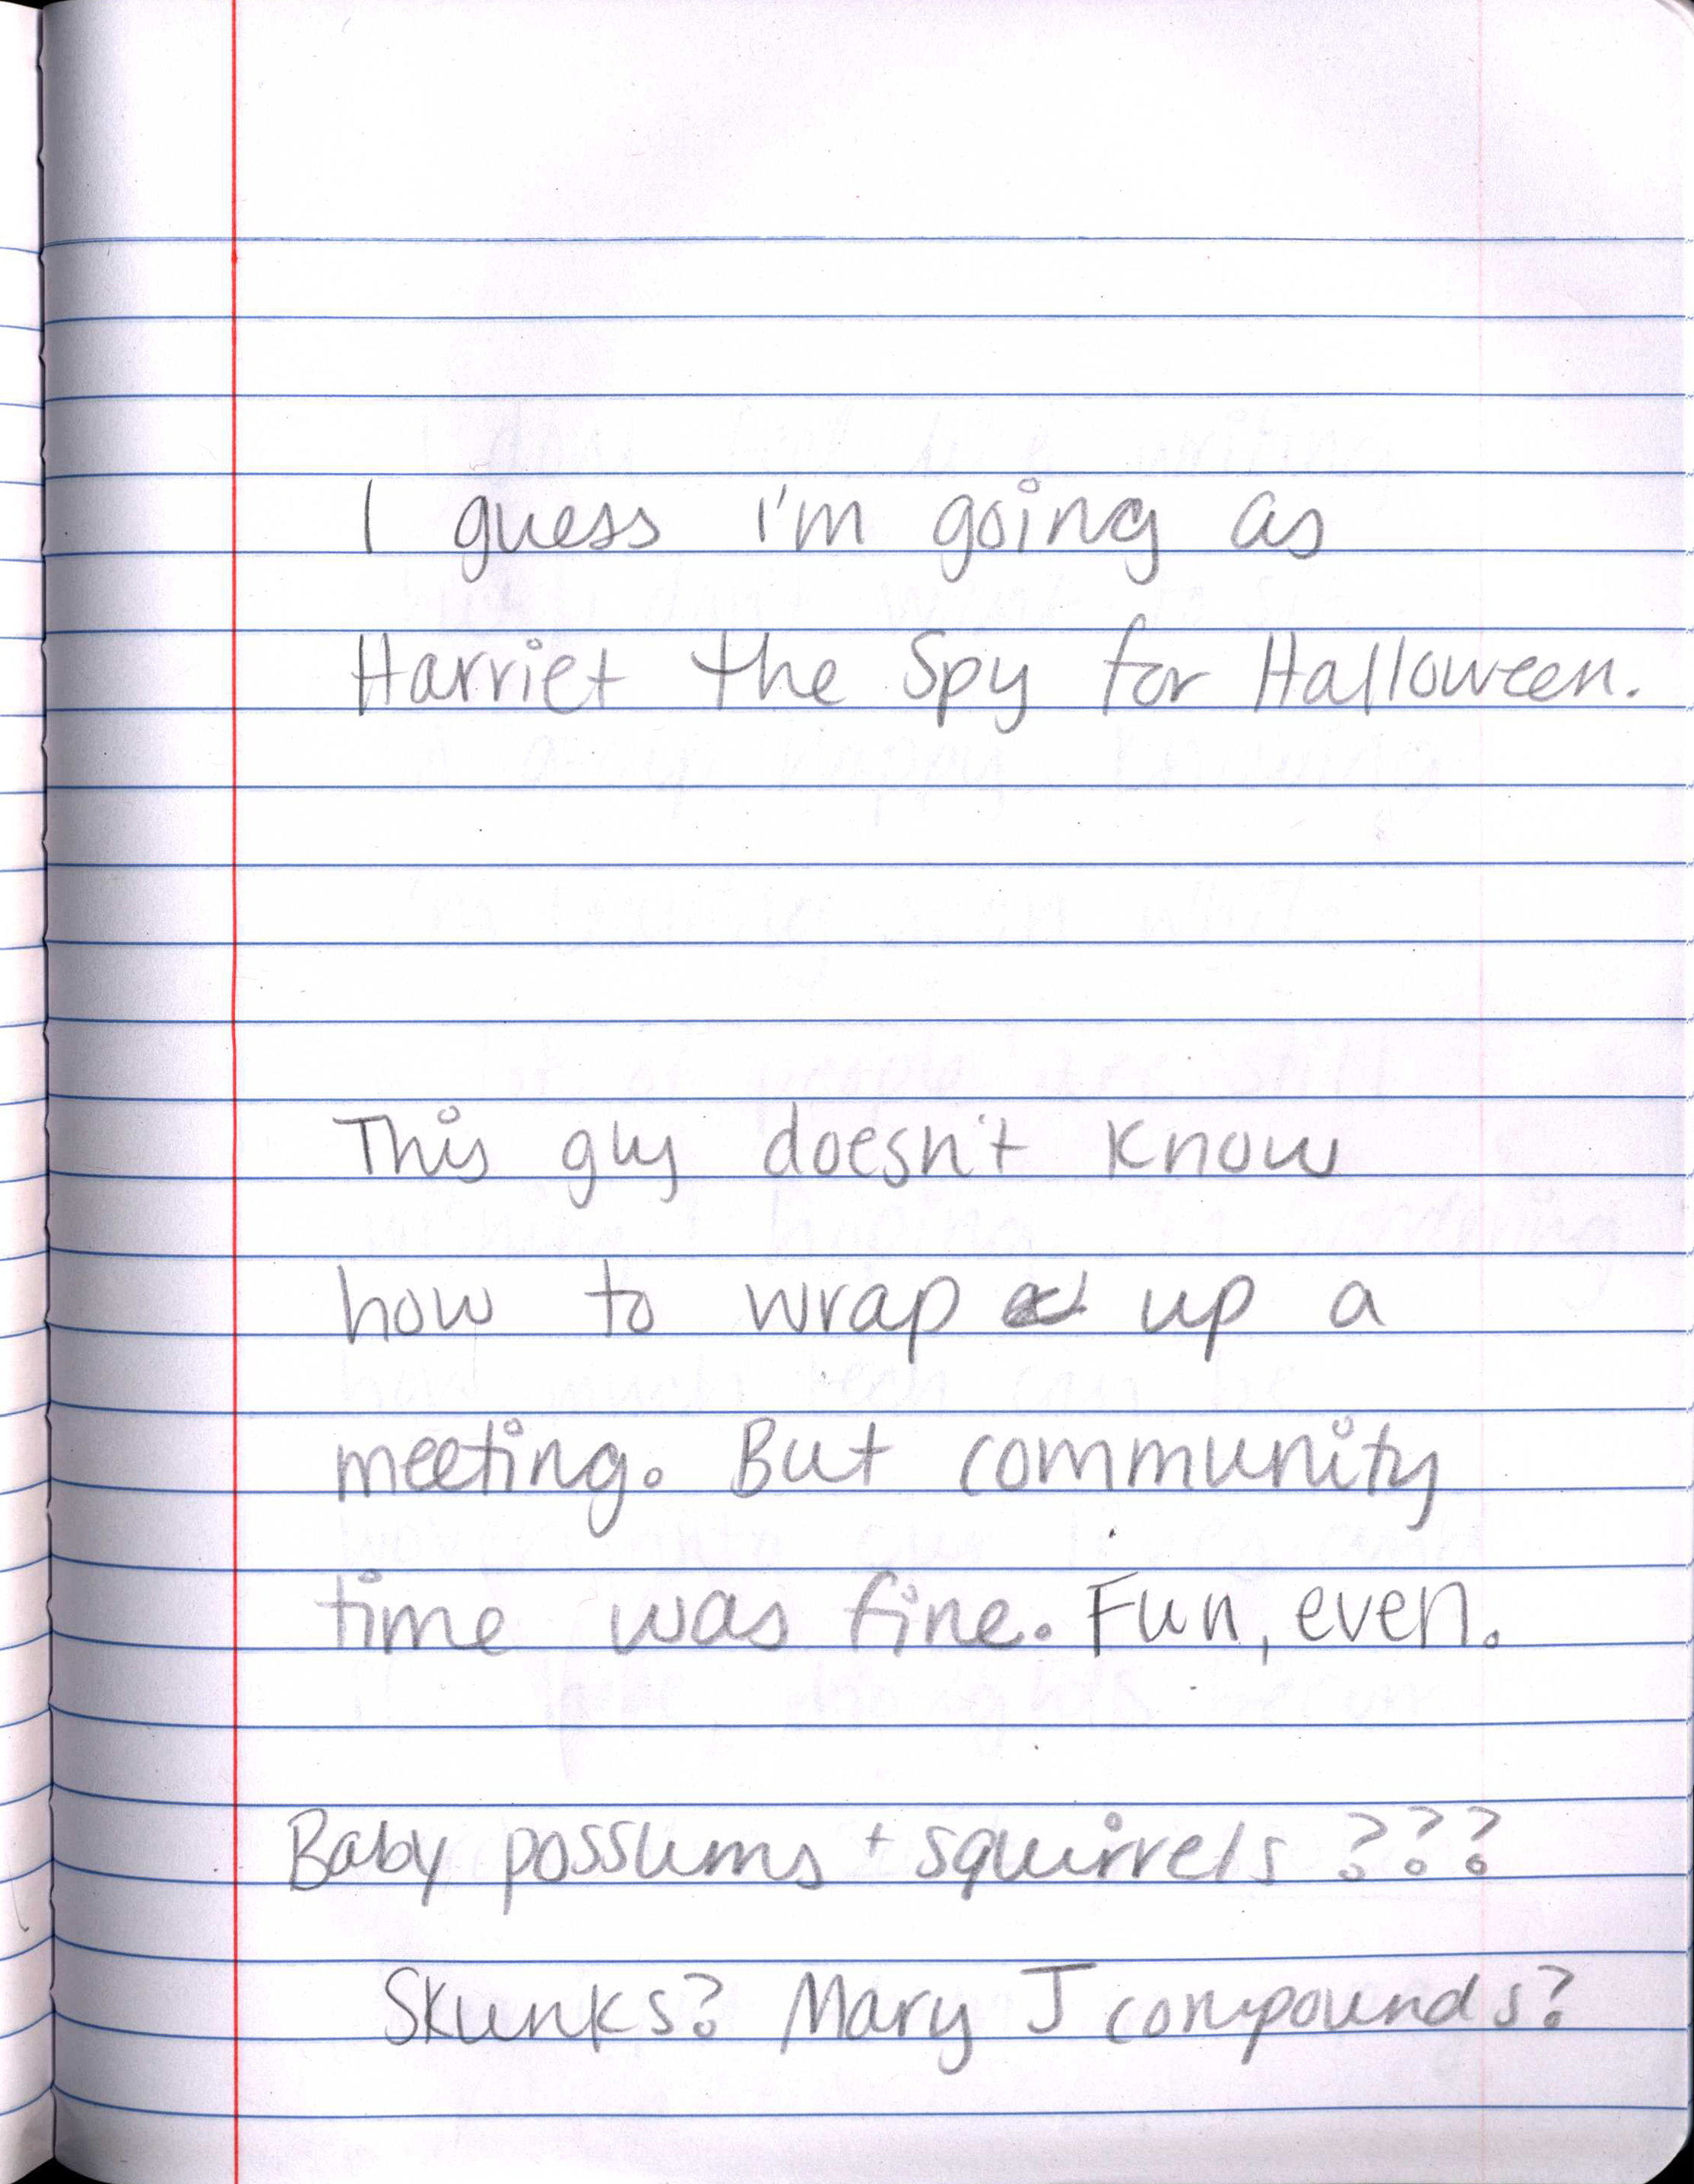 I guess i'm going as
Harriet the Spy for Halloween.
This guy doesn't know
how to wrap up a
meeting. But community
time was fine. Fun, even.
Baby possums + squirrels ???
Skunks? Mary J compounds?